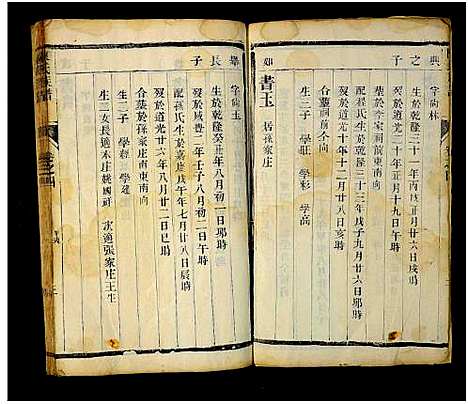 興之子
字尙林
生於乾隆三十一年丙戌正月廿六日子時
歿於道光二十年正月十九日午時
葬於李家祠前東南向
配程氏生於乾隆三十三年戊子九月廿六日卯時
歿於道光十年十二月廿八日亥時
合葬祠前仝向
生二子 學班 學彩 學高
郊
書玉 居孫家庄
舉長子
字尙玉
生於乾隆癸丑年八月初二日卯時
歿於咸豐二年壬子八月初二日午時
配孫氏生於嘉慶戊午年七月廿八日辰時
歿於道光廿六年八月廿二日巳時
合葬於孫家庄東南向
生二子 學經 學蓮
生三女長適禾庄姚國祥 次適張家庄王生
氏族譜
卷之四